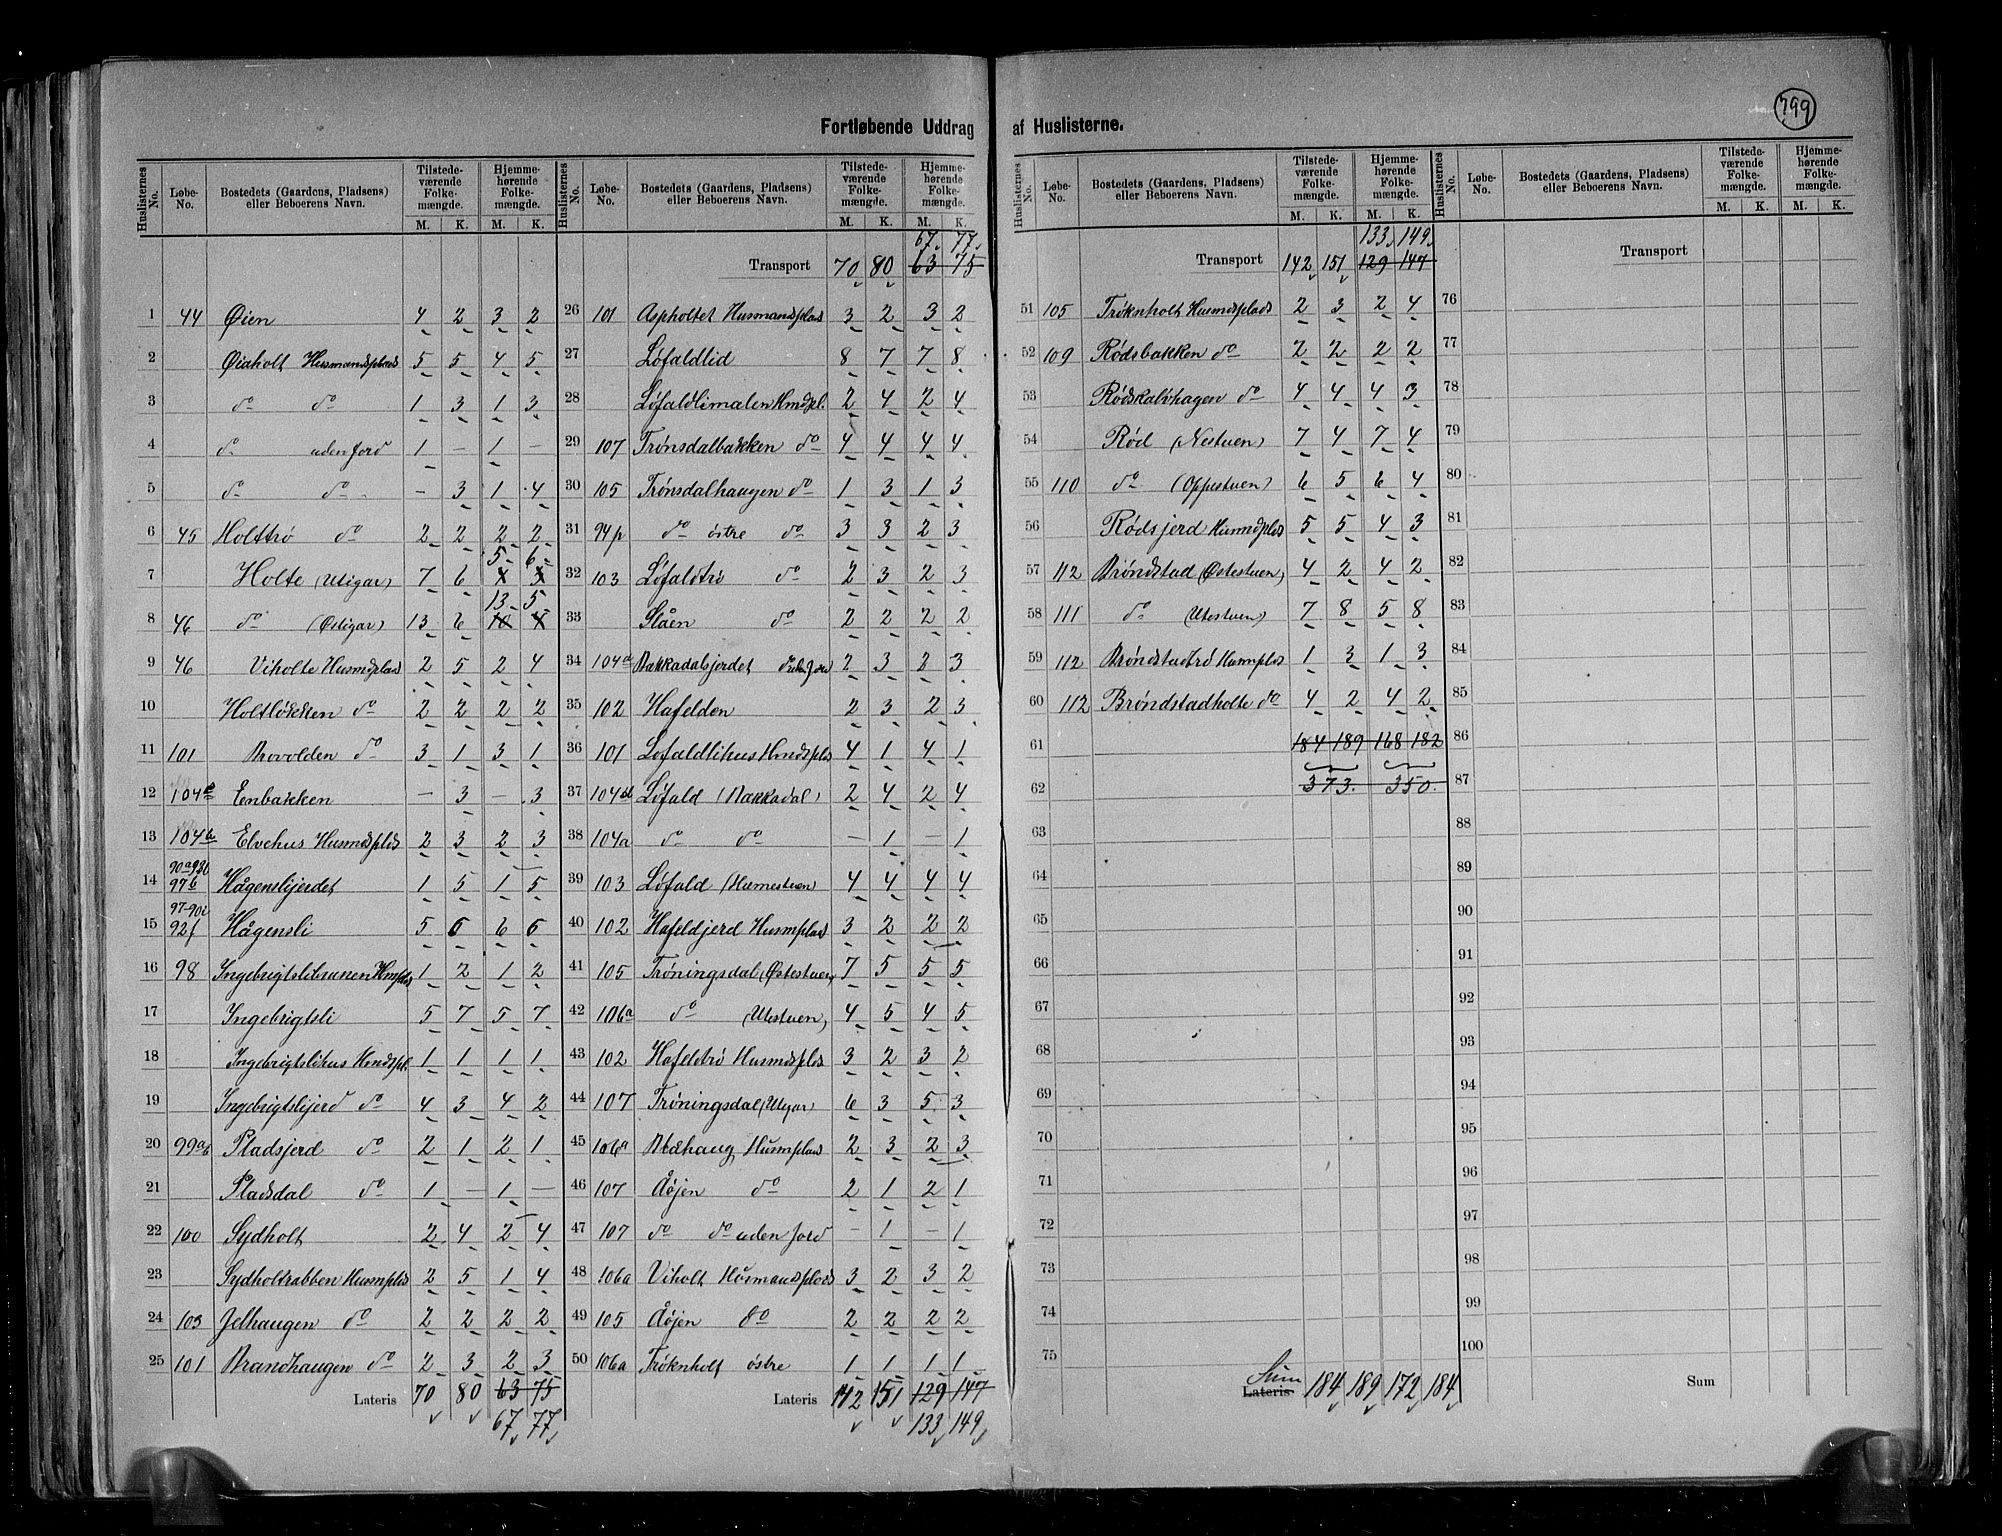 799
Fortløbende Uddrag af Huslisterne.
Huslisternes No. Løbe-No. Bostedets (Gaardens, Pladsens) eller Beboerens Navn. Tilstedeværende Folkemængde. M. K. Hjemmehørende Folkemængde. M. K.
1 44 Øien 4 2 3 2
2 Øiaholt Husmandsplads 5 5 4 5
3 do do 1 3 1 3
4 do uden jord 1 – 1 –
5 do do – 3 1 4
6 45 Holttrø do 2 2 2 2
5 6
7 Holte (Utigar) 7 6
13 5
8 46 do (Østigar) 13 6 10
9 46 Viholte Husmdsplads 2 5 2 4
10 Holtløkken do 2 2 2 2
11 101 Movolden do 3 1 3 1
12 104 Eenbakken – 3 – 3
13 104 Elvehus Husmdsplds 2 3 2 3
14 97b Hågenslijerdet 1 5 1 5
15 97-90i 92f Hågensli 5 6 6 6
16 98 Ingebrigtslitranen Hmplds 1 2 1 2
17 Ingebrigtsli 5 7 5 7
18 Ingebrigtslihus Hmdspl. 1 1 1 1
19 Ingebrigtslijerd do 4 3 4 2
20 99ab Pladsjerd do 2 1 2 1
21 Pladsdal do 1 – 1 –
22 100 Sydholt 2 4 2 4
23 Sydholtrabben Husmplds 2 5 1 4
24 103 Jelhaugen do 2 2 2 2
25 101 Brandhaugen do 2 3 2 3
Lateris 70 80 63 75
67 77
Huslisternes No. Løbe-No. Bostedets (Gaardens, Pladsens) eller Beboerens Navn. Tilstedeværende Folkemængde. M. K. Hjemmehørende Folkemængde. M. K.
67 77
Transport 70 80 63 75
26 101 Aspholtet Husmandsplads 3 2 3 2
27 Løfaldlid 8 7 7 8
28 Løfaldlimalen Hmdspl. 2 4 2 4
29 107 Trønsdalbakken do 4 4 4 4
30 105 Trønsdalhaugen do 1 3 1 3
31 94p do østre do 3 3 2 3
32 103 Løfaldtrø do 2 3 2 3
33 Slåen do 2 2 2 2
34 104 Bakkadalsjerdet 2 3 2 3
35 102 Hafelden 2 3 2 3
36 101 Løfaldlihus Hmdsplds 4 1 4 1
37 104 Løfald (Bakkadal) 2 4 2 4
38 104a do do – 1 – 1
39 103 Løfald (Heimestuen) 4 4 4 4
40 102 Hafeldjerd Husmplads 3 2 2 2
41 105 Trøningsdal (Østestuen) 7 5 5 5
42 106a do (Utestuen) 4 5 4 5
43 102 Hafeldtrø Husmdsplds 3 2 3 2
44 107 Trøningsdal (Utigar) 6 3 5 3
45 106a Medhaug Husmplads 2 3 2 3
46 107 Åøjen do 2 1 2 1
47 107 do do uden jord – 1 – 1
48 106a Viholt Husmandsplads 3 2 3 2
49 105 Åøjen do 2 2 2 2
50 106a Trøknholt østre 1 1 1 1
Lateris 142 151 129 147
133 149
Huslisternes No. Løbe-No. Bostedets (Gaardens, Pladsens) eller Beboerens Navn. Tilstedeværende Folkemængde. M. K. Hjemmehørende Folkemængde. M. K.
133 149
Transport 142 151 129 147
51 105 Trøknholt Husmdsplads 2 3 2 4
52 109 Rødsbakken do 2 2 2 2
53 Rødskalvhagen do 4 4 4 3
54 Rød (Nestuen) 7 4 7 4
55 110 do (Oppestuen) 6 5 6 4
56 Rødsjerd Husmdplds 5 5 4 3
57 112 Brøndstad (Østestuen) 4 2 4 2
58 111 do (Utestuen) 7 8 5 8
59 112 Brøndstadtrø Husmplds 1 3 1 3
60 112 Brøndstadholte do 4 2 4 2
61 184 189 168 182
62 373. 350.
63
64
65
66
67
68
69
70
71
72
73
74
75
Sum
Lateris 184 189 172 184
Huslisternes No. Løbe-No. Bostedets (Gaardens, Pladsens) eller Beboerens Navn. Tilstedeværende Folkemængde. M. K. Hjemmehørende Folkemængde. M. K.
Transport
76
77
78
79
80
81
82
83
84
85
86
87
88
89
90
91
92
93
94
95
96
97
98
99
100
Sum